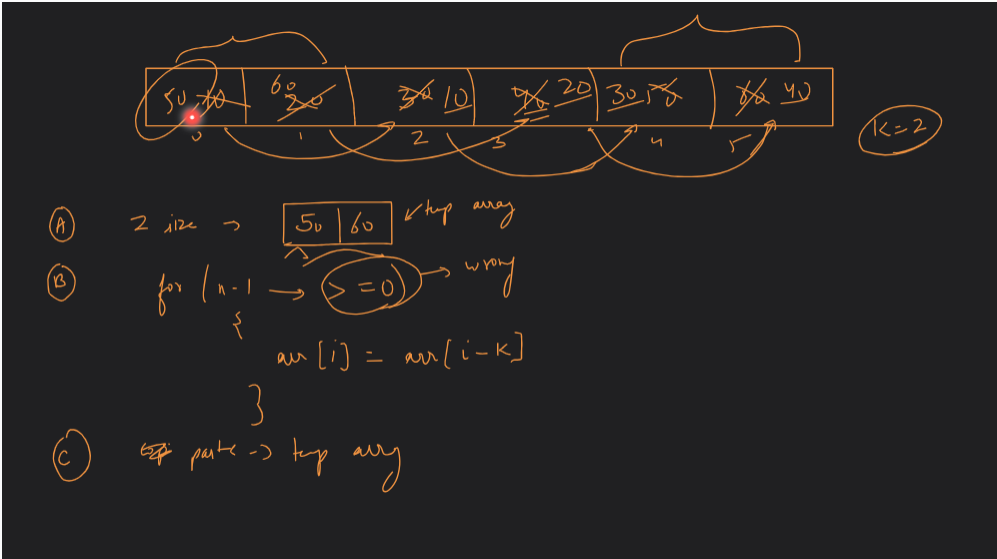 50 10 60 20 30 10 40 20 30 50 60 40
0 1 2 3 4 5
K=2
A 2 size → 50 60 ↙ tmp array
B for (n-1 → >=0) → wrong
{
arr[i] = arr[i-K]
}
C paste → tmp array